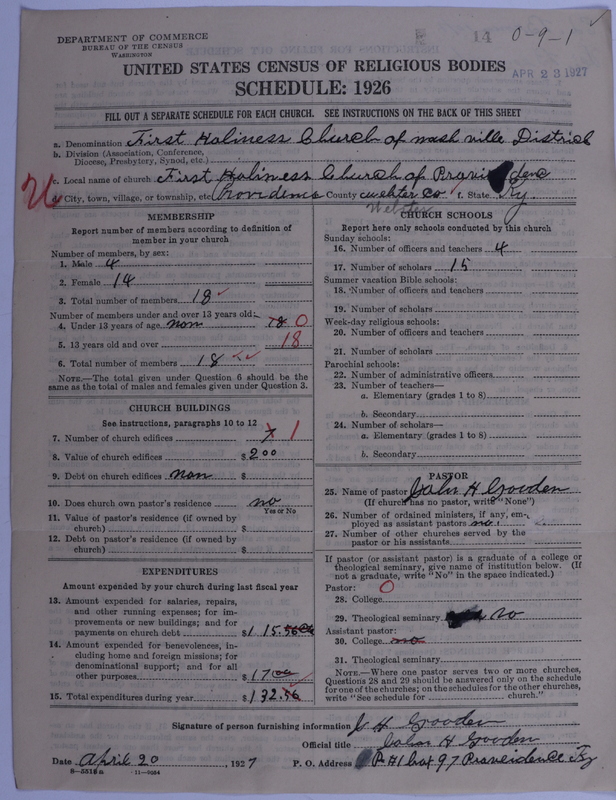 DEPARTMENT OF COMMERCE
BUREAU OF THE CENSUS
WASHINGTON
14 0-9-1
APR 23 1927
UNITED STATES CENSUS OF RELIGIOUS BODIES
SCHEDULE: 1926
FILL OUT A SEPARATE SCHEDULE FOR EACH CHURCH. SEE INSTRUCTIONS ON THE BACK OF THIS SHEET
a. Denomination First Holiness Church of nashville District
b. Division (Association, Conference, Diocese, Presbytery, Synod, etc.)
c. Local name of church First Holiness Church of
d. City, town, village, or township, etc. Providence County co f. State Ky.
Webster
MEMBERSHIP
Report number of members according to definition of
member in your church
Number of members, by sex:
1. Male 4
2. Female 14
3. Total number of members 18
Number of members under and over 13 years old:
4. Under 13 years of age non 18 0
5. 13 years old and over 18
6. Total number of members 18
NOTE.—The total given under Question 6 should be the
same as the total of males and females given under Question 3.
CHURCH BUILDINGS
See instructions, paragraphs 10 to 12
7. Number of church edifices 1
8. Value of church edifices $ 200
9. Debt on church edifices non $
10. Does church own pastor's residence no
Yes or No
11. Value of pastor's residence (if owned by
church) $
12. Debt on pastor's residence (if owned by
church) $
EXPENDITURES
Amount expended by your church during last fiscal year
13. Amount expended for salaries, repairs,
and other running expense; for im-
provements or new buildings; and for
payments on church debt $ 115.56
14. Amount expended for benevolences, in-
cluding home and foreign missions; for
denominational support; and for all
other purposes $ 17 00
15. Total expenditures during year $ 132.56
CHURCH SCHOOLS
Report here only schools conducted by this church
Sunday schools:
16. Number of officers and teachers 4
17. Number of scholars 15
Summer vacation Bible schools:
18. Number of officers and teachers
19. Number of scholars
Week-day religious schools:
20. Number of officers and teachers
21. Number of scholars
Parochial schools:
22. Number of administrative officers
23. Number of teachers—
a. Elementary (grades 1 to 8)
b. Secondary
24. Number of scholars—
a. Elementary (grades 1 to 8)
b. Secondary
PASTOR
25. Name of pastor John H Gooden
(If church has no pastor, write "None")
26. Number of ordained ministers, if any, em-
ployed as assistant pastors no.
27. Number of other churches served by the
pastor or his assistants
If pastor (or assistant pastor) is a graduate of a college or
theological seminary, give name of institution below. (If
not a graduate, write "No" in the space indicated.)
Pastor: 0
28. College
29. Theological seminary no
Assistant pastor:
30. College no
31. Theological seminary
NOTE.—Where one pastor serves two or more churches,
Questions 28 and 29 should be answered only on the schedule
for one of the churches; on the schedules for the other churches,
write "See schedule for church."
Signature of person furnishing information J H Gooden
Official title John H Gooden
Date April 20, 1927 P. O. Address R #1 box 97 Praveidence Ky
8-5518a 11-9054